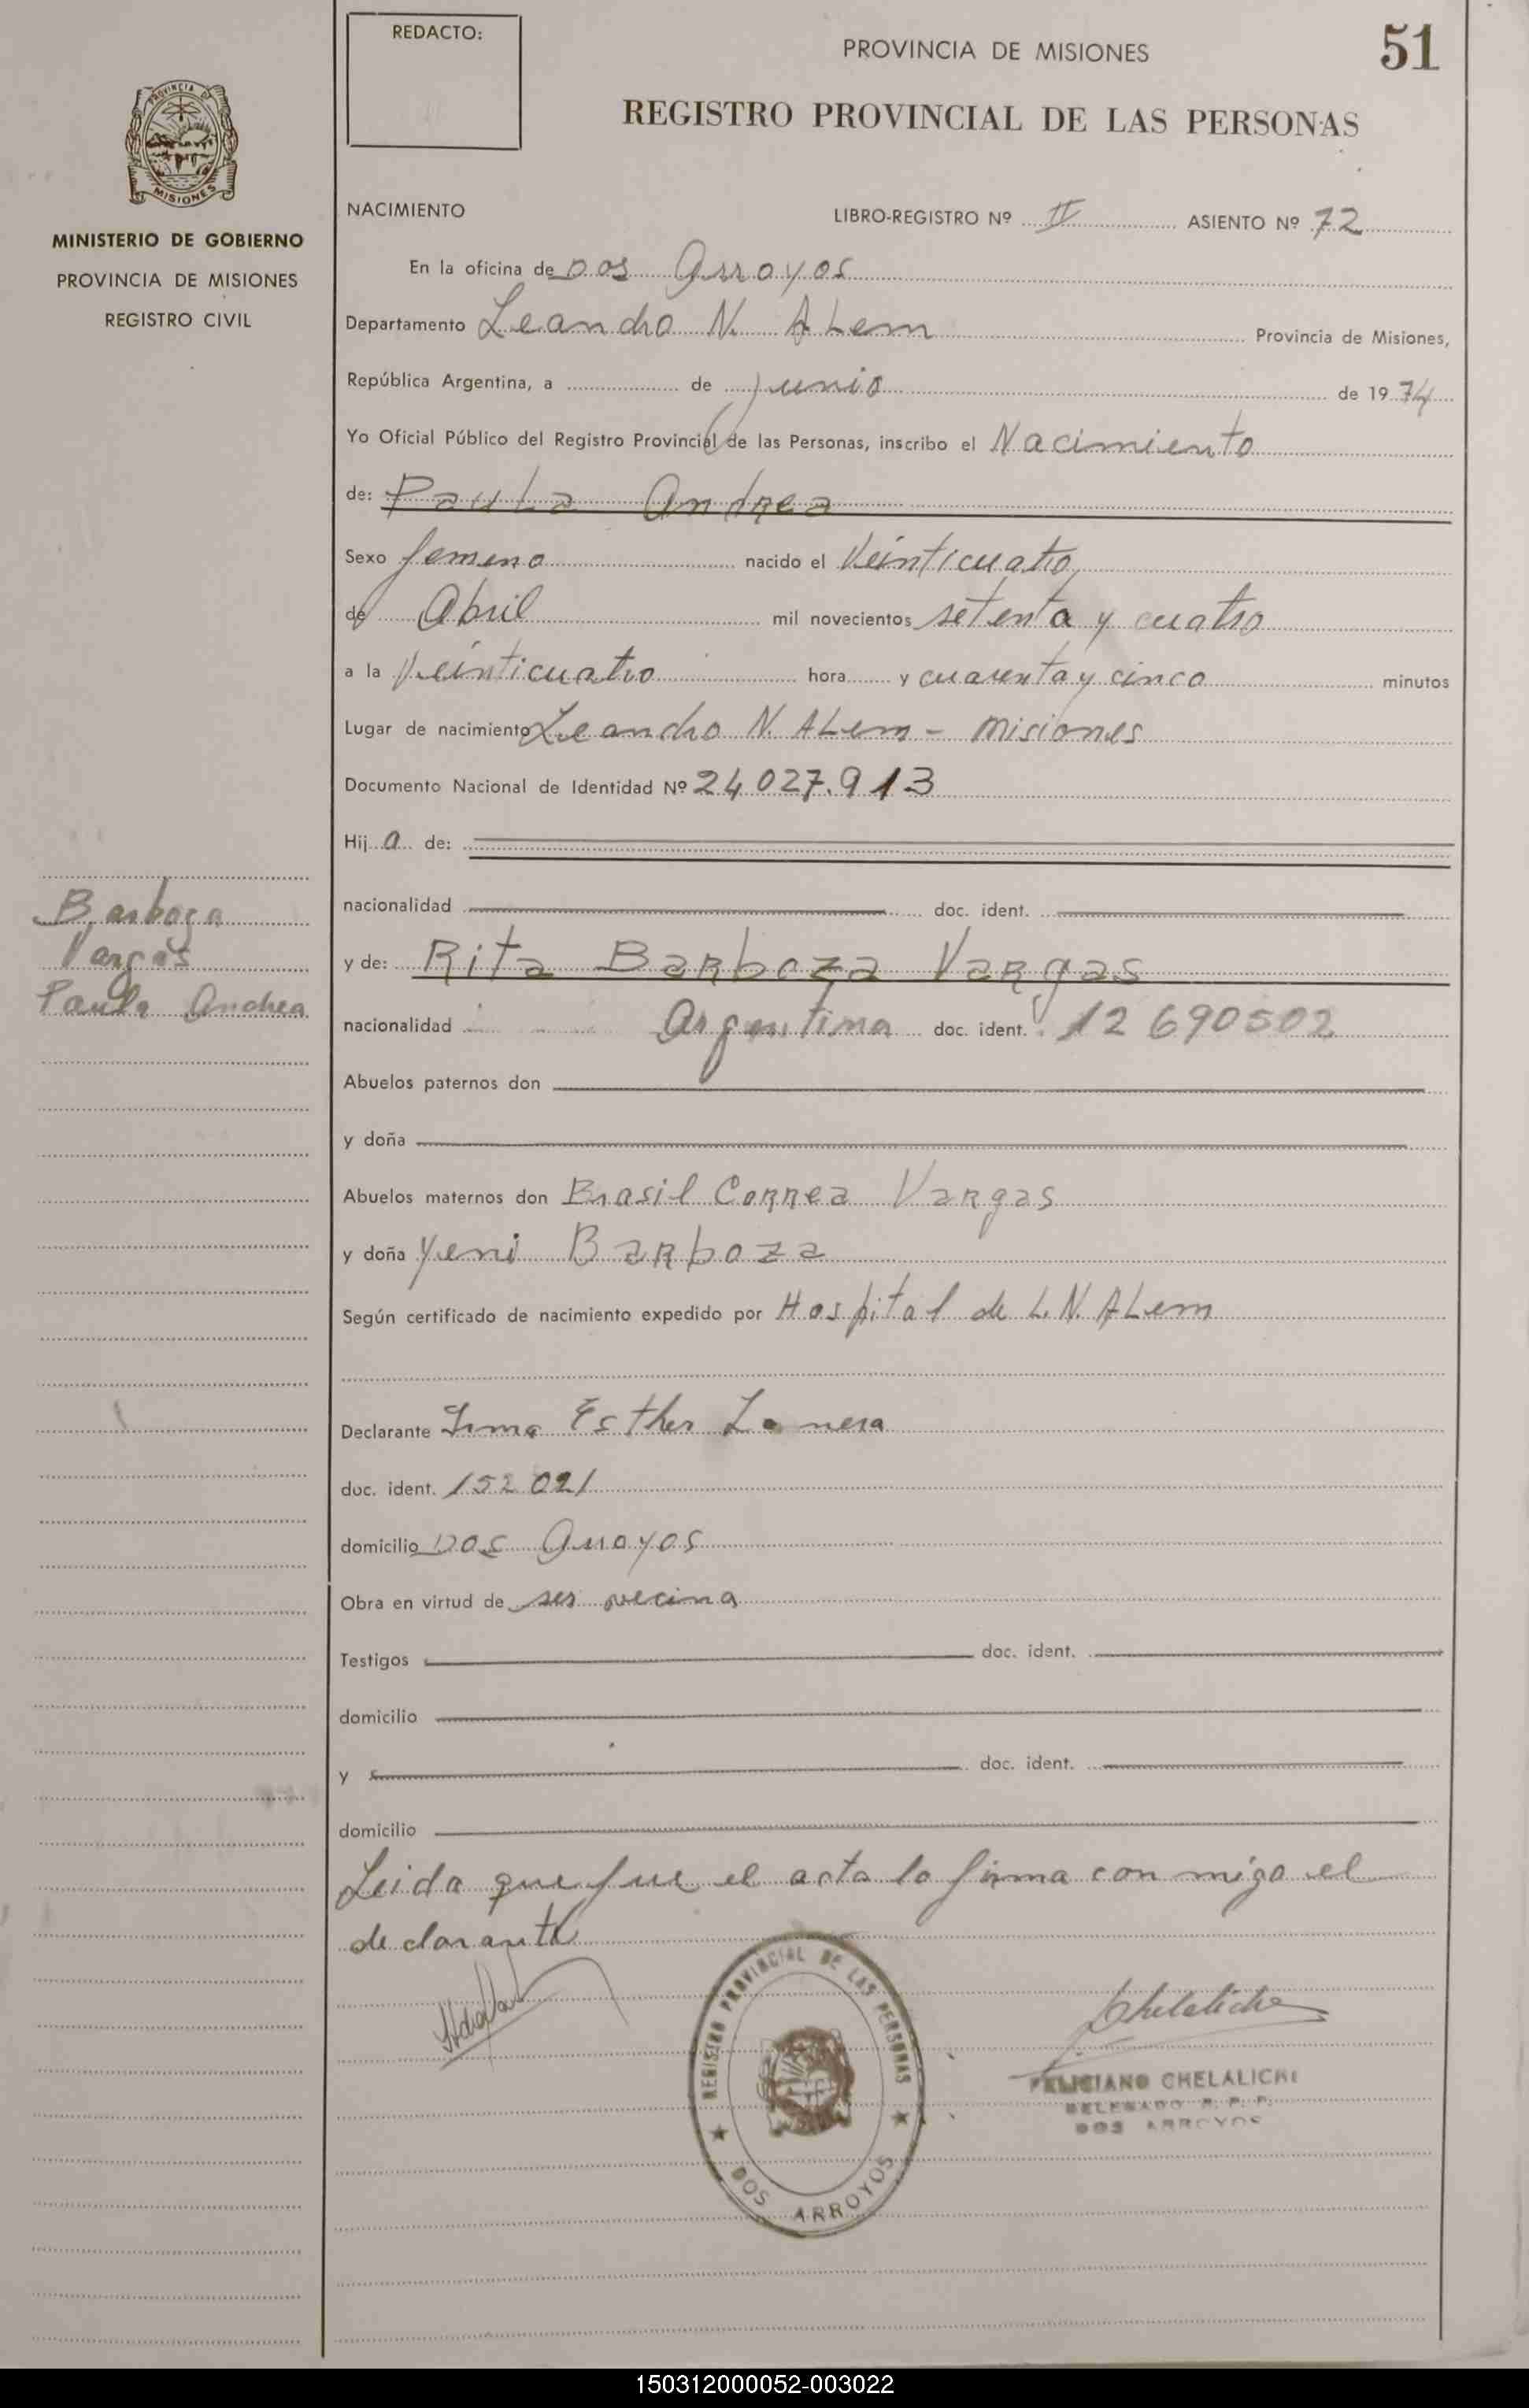 REDACTO:
PROVINCIA DE MISIONES
51
REGISTRO PROVINCIAL DE LAS PERSONAS
PROVINCIA DE
MISIONES
MINISTERIO DE GOBIERNO
PROVINCIA DE MISIONES
REGISTRO CIVIL
NACIMIENTO LIBRO-REGISTRO Nº II ASIENTO Nº 72
En la oficina de Dos Arroyos
Departamento Leandro N. ALem Provincia de Misiones,
República Argentina, a de junio de 1974
Yo Oficial Público del Registro Provincial de las Personas, inscribo el Nacimiento
de: PauLa Andrea
Sexo femeno nacido el Veinticuatro
de Abril mil novecientos setenta y cuatro
a la Veinticuatro hora y cuarenta y cinco minutos
Lugar de nacimiento Leandro N. ALem - Misiones
Documento Nacional de Identidad Nº 24 027.913
Hij a de:
nacionalidad doc. ident.
Barboza
Vargas
Paula Andrea
y de: Rita Barboza Vargas
nacionalidad Argentina doc. ident. 12 690502
Abuelos paternos don
y doña
Abuelos maternos don Brasil Correa Vargas
y doña Yeni Barboza
Según certificado de nacimiento expedido por Hospital de L. N. ALem
Declarante Irma Esther
doc. ident. 152 021
domicilio Dos Arroyos
Obra en virtud de ser vecina
Testigos doc. ident.
domicilio
y doc. ident.
domicilio
Leida que fue el acta lo firma con migo el
declarante
REGISTRO PROVINCIAL DE LAS PERSONAS
DOS ARROYOS
Chelaliche
FELICIANO CHELALICHE
DELEGADO R. P. P.
DOS ARROYOS
150312000052-003022